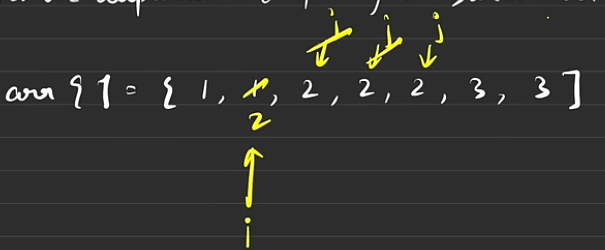 j j j
arr [ ] = { 1, 1, 2, 2, 2, 3, 3 ]
2
i